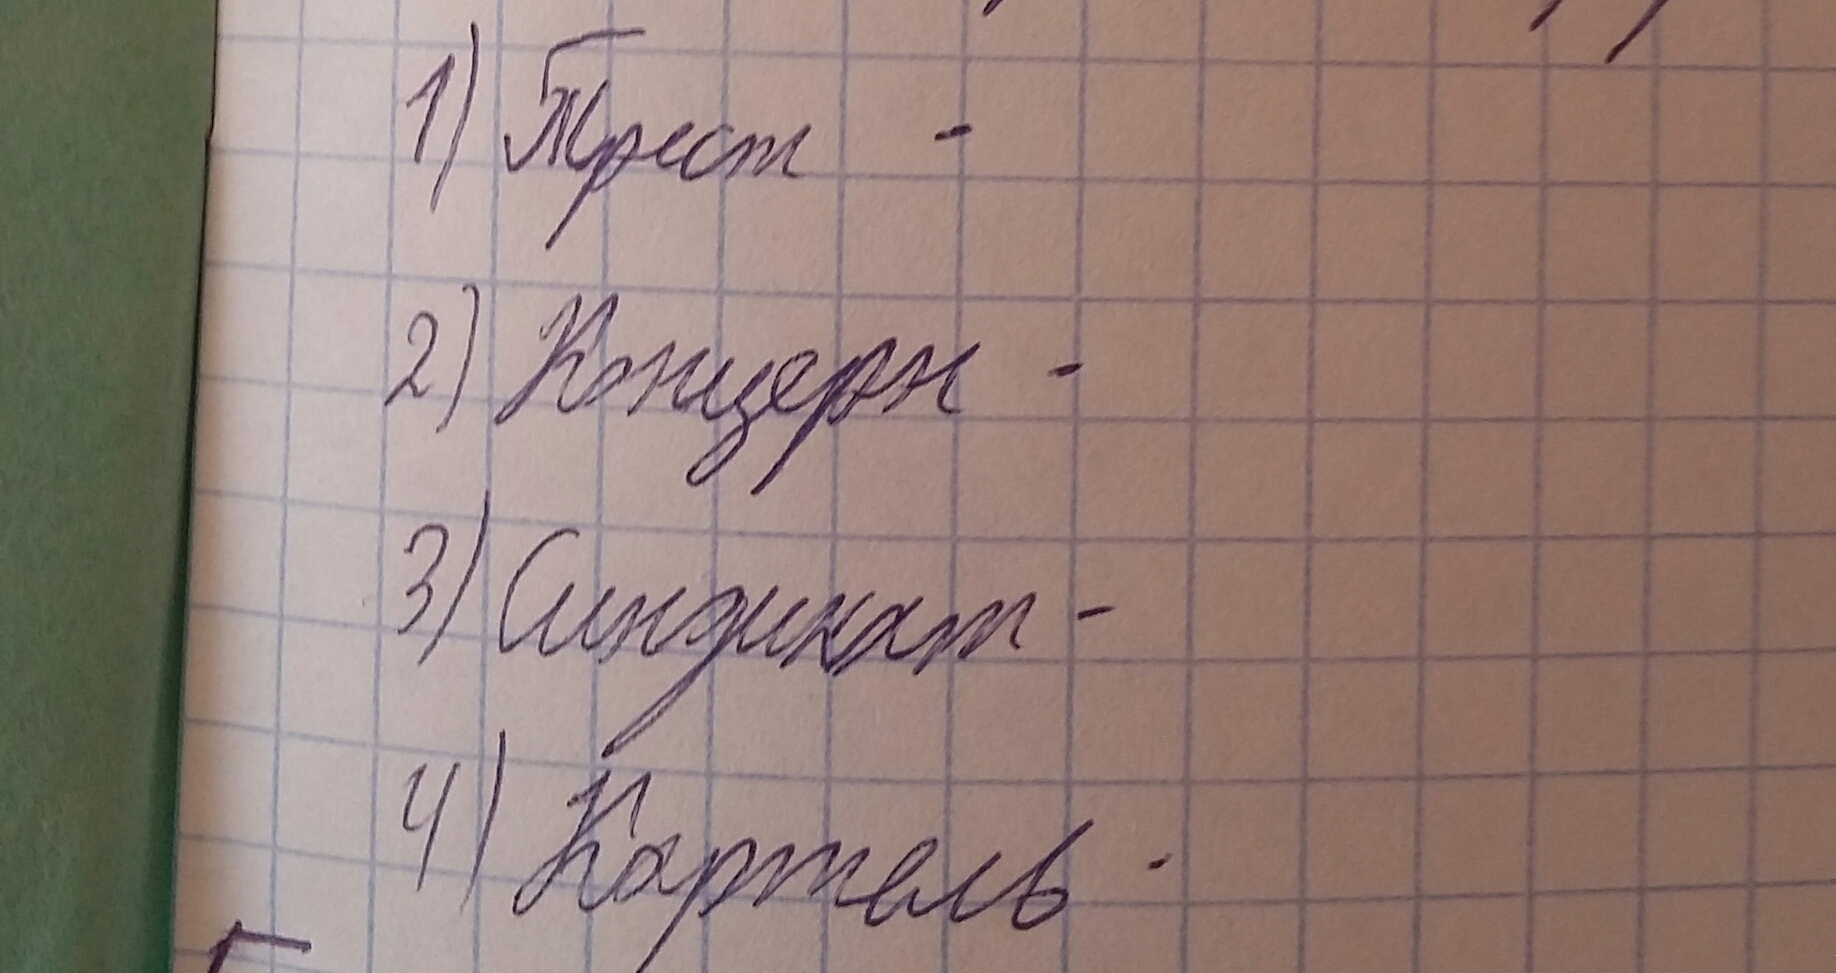 1) Трест -
2) Концерн -
3) Синдикат -
4) Картель -